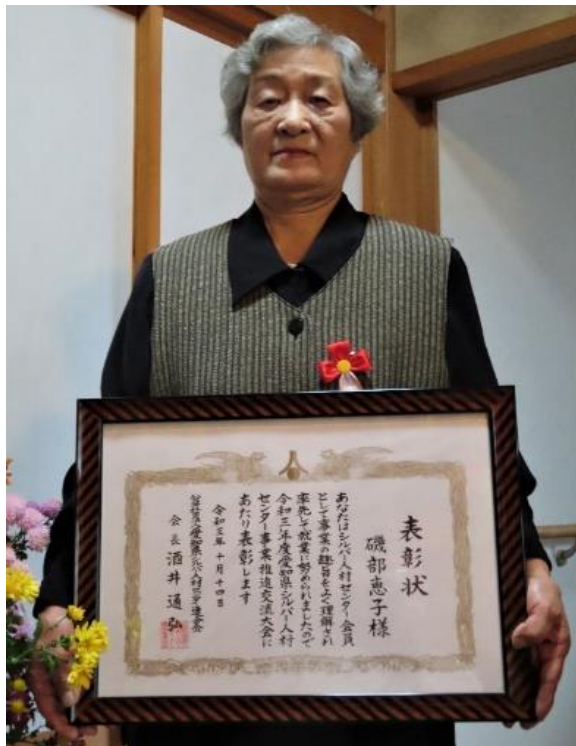 表彰状
磯部恵子様
あなたはシルバー人材センター会員
として事業の趣旨をよく理解され
率先して就業に努められましたので
令和三年度愛知県シルバー人材
センター事業推進交流大会に
あたり表彰します
令和三年十月十四日
公益社団法人愛知県シルバー人材センター連合会
会長 酒井通弘